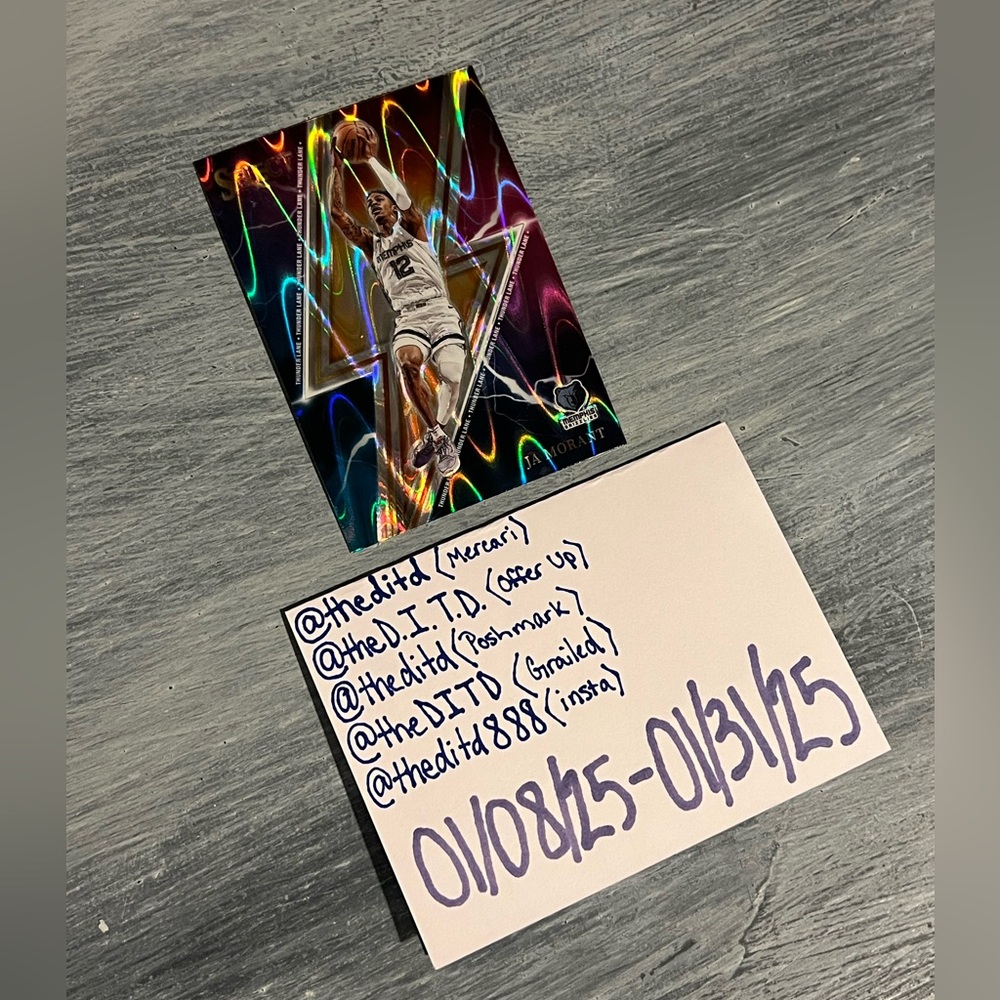 THUNDER LANE • THUNDER LANE • THUNDER LANE • THUNDER LANE •
MEMPHIS
12
THUNDER LANE • THUNDER LANE • THUNDER LANE •
MEMPHIS
GRIZZLIES
JA MORANT
@theditd (Mercari)
@theD.I.T.D. (Offer Up)
@theditd (Poshmark)
@theDITD (Grailed)
@theditd888 (insta)
01/08/25-01/31/25